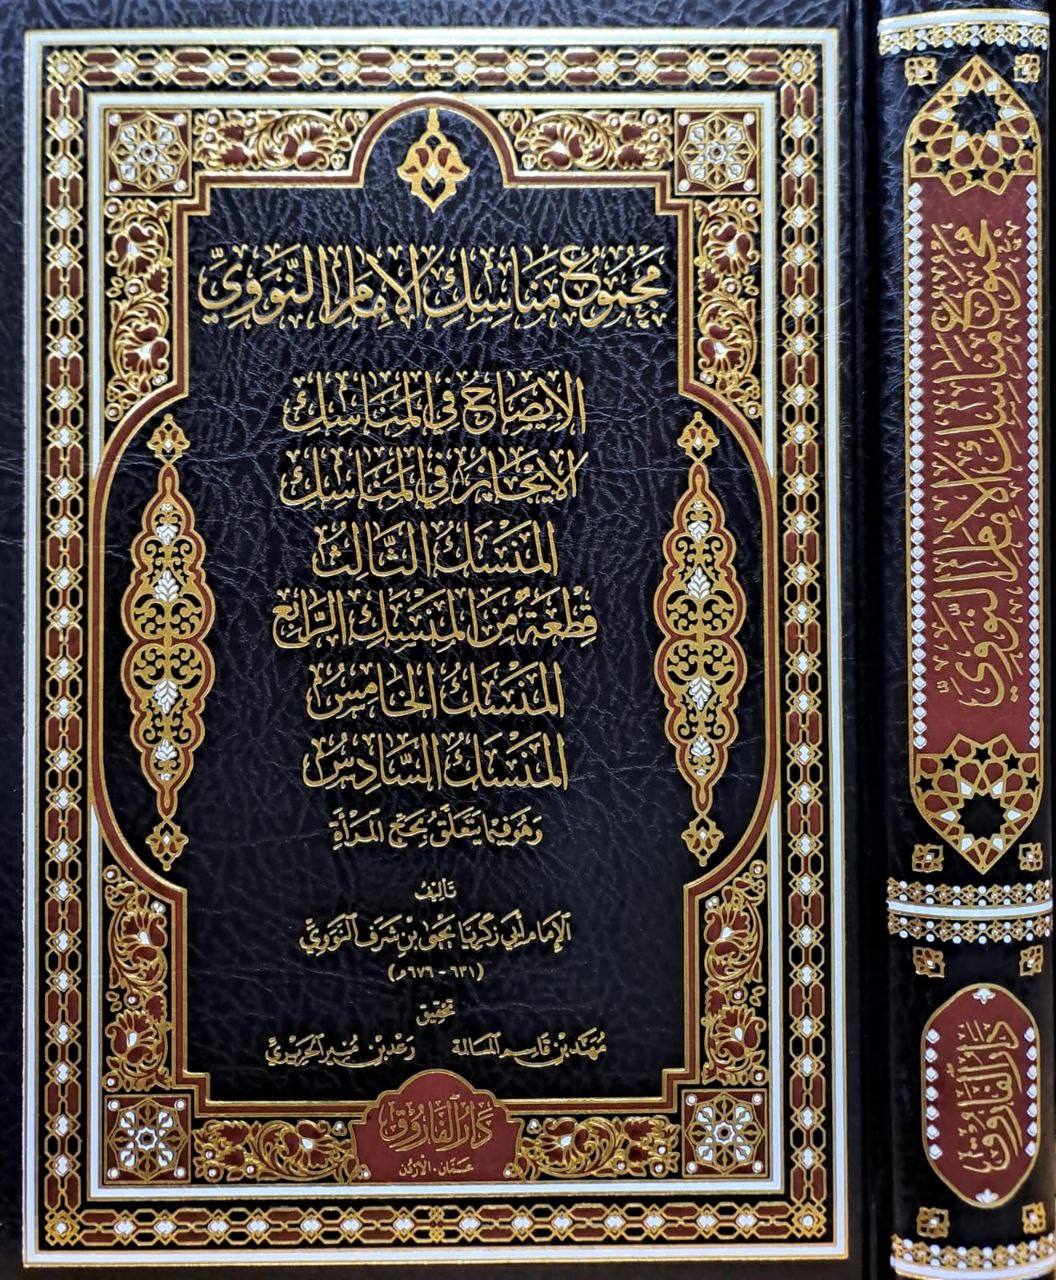 مَجْمُوعُ مَنَاسِكِ الإِمَامِ النَّوَوِيِّ
الإِيضَاحُ فِي المَنَاسِكِ
الإِيجَازُ فِي المَنَاسِكِ
المَنْسَكُ الثَّالِثُ
قِطْعَةٌ مِنَ المَنْسَكِ الرَّابِعِ
المَنْسَكُ الخَامِسُ
المَنْسَكُ السَّادِسُ
وَهُوَ فِيمَا يَتَعَلَّقُ بِحَجِّ المَرْأَةِ
تَأْلِيفُ
الإِمَامِ أَبِي زَكَرِيَّا يَحْيَى بْنِ شَرَفٍ النَّوَوِيِّ
(٦٣١ - ٦٧٦ه)
تَحْقِيق
مُهَنَّد بْن قَاسِم المسالمة رَعْد بْن مُنِير الحَرِيرِيّ
دَارُ الفَارُوقِ
عمّان - الأردن
مَجْمُوعُ مَنَاسِكِ الإِمَامِ النَّوَوِيِّ
دَارُ الفَارُوقِ